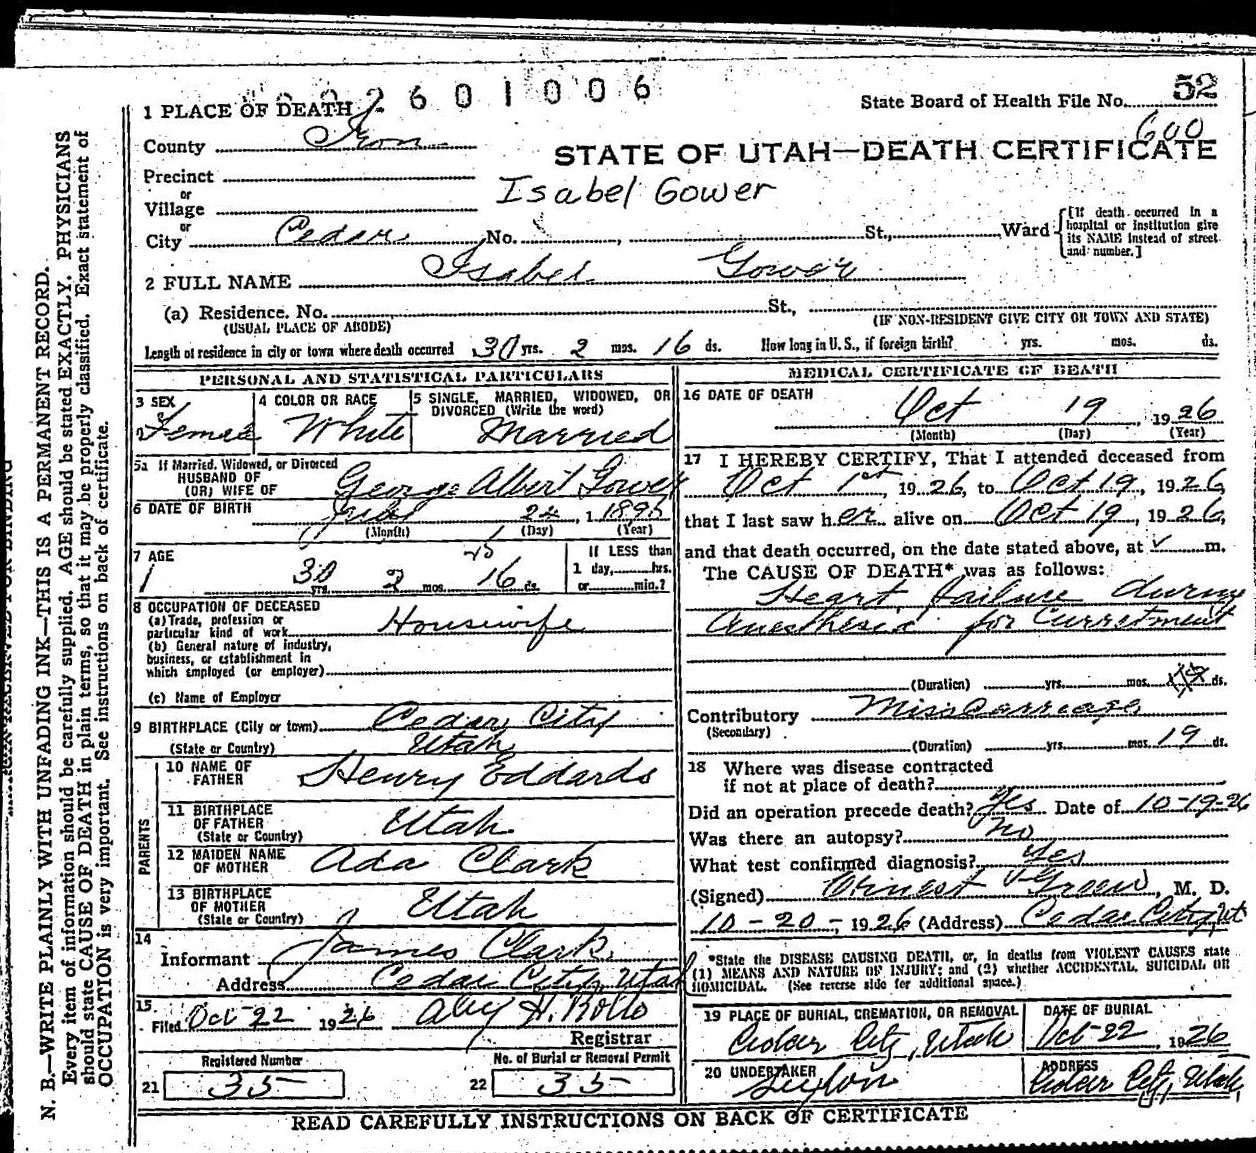 2601006
52
1 PLACE OF DEATH
State Board of Health File No.
600
County Iron
STATE OF UTAH—DEATH CERTIFICATE
Precinct
or
Isabel Gower
Village
or
City Cedar No. , St., Ward
[If death occurred in a
hospital or institution give
its NAME instead of street
and number.]
2 FULL NAME Isabel Gower
(a) Residence. No. St.,
(USUAL PLACE OF ABODE) (IF NON-RESIDENT GIVE CITY OR TOWN AND STATE)
Length of residence in city or town where death occurred 30 yrs. 2 mos. 16 ds. How long in U. S., if foreign birth? yrs. mos. ds.
PERSONAL AND STATISTICAL PARTICULARS
3 SEX
Female
4 COLOR OR RACE
White
5 SINGLE, MARRIED, WIDOWED, OR
DIVORCED (Write the word)
Married
5a If Married, Widowed, or Divorced
HUSBAND OF
(OR) WIFE OF George Albert Gower
6 DATE OF BIRTH 24, 1895
(Month) (Day) (Year)
7 AGE
30 yrs. 2 mos. 16 ds.
If LESS than
1 day, hrs.
or min.?
8 OCCUPATION OF DECEASED
(a) Trade, profession or
particular kind of work Housewife
(b) General nature of industry,
business, or establishment in
which employed (or employer)
(c) Name of Employer
9 BIRTHPLACE (City or town) Cedar City
(State or Country) Utah
PARENTS
10 NAME OF
FATHER Henry Eddards
11 BIRTHPLACE
OF FATHER
(State or Country) Utah
12 MAIDEN NAME
OF MOTHER Ada Clark
13 BIRTHPLACE
OF MOTHER
(State or Country) Utah
14
Informant James Clark
Address Cedar City, Utah
15
Filed Oct 22 1926
Registrar
Registered Number
21 35
No. of Burial or Removal Permit
22 35
MEDICAL CERTIFICATE OF DEATH
16 DATE OF DEATH
Oct 19, 1926
(Month) (Day) (Year)
17 I HEREBY CERTIFY, That I attended deceased from
Oct 1st, 1926, to Oct 19, 1926,
that I last saw her alive on Oct 19, 1926,
and that death occurred, on the date stated above, at m.
The CAUSE OF DEATH* was as follows:
Heart failure during
Anesthesia for Curretment
(Duration) yrs. mos. ds.
Contributory Misscarriage
(Secondary)
(Duration) yrs. mos. 19 ds.
18 Where was disease contracted
if not at place of death?
Did an operation precede death? Yes Date of 10-19-26
Was there an autopsy? no
What test confirmed diagnosis? Yes
(Signed) Ernest Green, M. D.
10-20-, 1926 (Address) Cedar City, Ut
*State the DISEASE CAUSING DEATH, or, in deaths from VIOLENT CAUSES state
(1) MEANS AND NATURE OF INJURY; and (2) whether ACCIDENTAL, SUICIDAL OR
HOMICIDAL. (See reverse side for additional space.)
19 PLACE OF BURIAL, CREMATION, OR REMOVAL
Cedar City, Utah
DATE OF BURIAL
Oct-22, 1926
20 UNDERTAKER
ADDRESS
Cedar City, Utah
READ CAREFULLY INSTRUCTIONS ON BACK OF CERTIFICATE
N. B.—WRITE PLAINLY WITH UNFADING INK—THIS IS A PERMANENT RECORD.
Every item of information should be carefully supplied. AGE should be stated EXACTLY. PHYSICIANS
should state CAUSE OF DEATH in plain terms, so that it may be properly classified. Exact statement of
OCCUPATION is very important. See instructions on back of certificate.